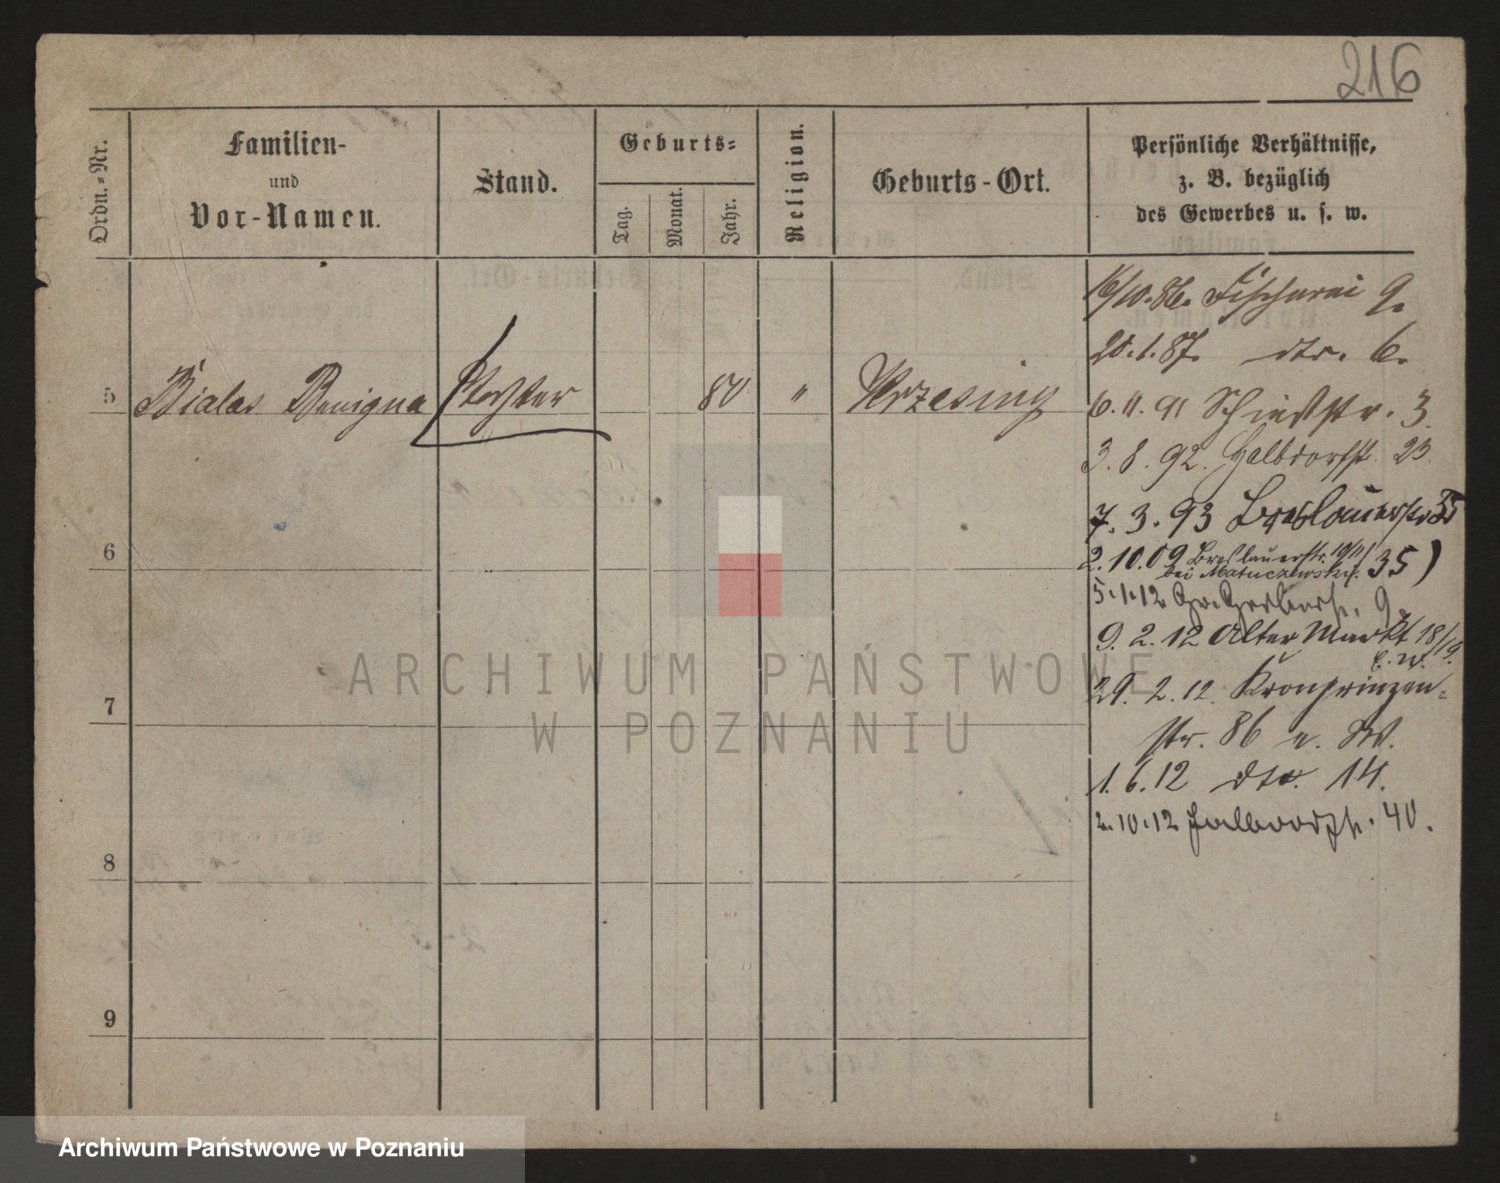 216
Ordn.-Nr.
Familien-
und
Vor-Namen.
Stand.
Geburts-
Tag.
Monat.
Jahr.
Religion.
Geburts-Ort.
Persönliche Verhältnisse,
z. B. bezüglich
des Gewerbes u. s. w.
16/10.86. Fischerei 9.
21.1.87. dto. 6.
5 Bialas Benigna Tochter 80 " Wrzesiny
6.11.91 Schießstr. 3.
3.8.92. Halbdorfstr. 23.
7.3.93 Breslauerstr 35
6
2.10.09 Breslauerstr. 19/11 35)
bei Matuczewski
5.1.12 9.
9.2.12 Alter Markt 18/19.
b. W.
7
29.2.12. Kronprinzen-
str. 86 b. W.
1.6.12 dto. 14.
2.10.12 Halbdorfstr. 40.
8
9
ARCHIWUM PAŃSTWOWE
W POZNANIU
Archiwum Państwowe w Poznaniu